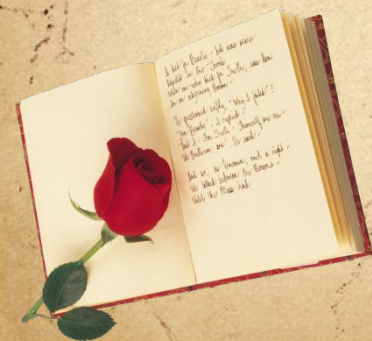 I died for Beauty - but was scarce
Adjusted in the Tomb
When one who died for Truth, was lain
In an adjoining Room -
He questioned softly, "Why I failed"?
"For Beauty", I replied -
"And I - for Truth - Themself are one -
We Brethren are", He said -
And so, as Kinsmen, met a Night -
We talked between the Rooms -
Until the Moss had